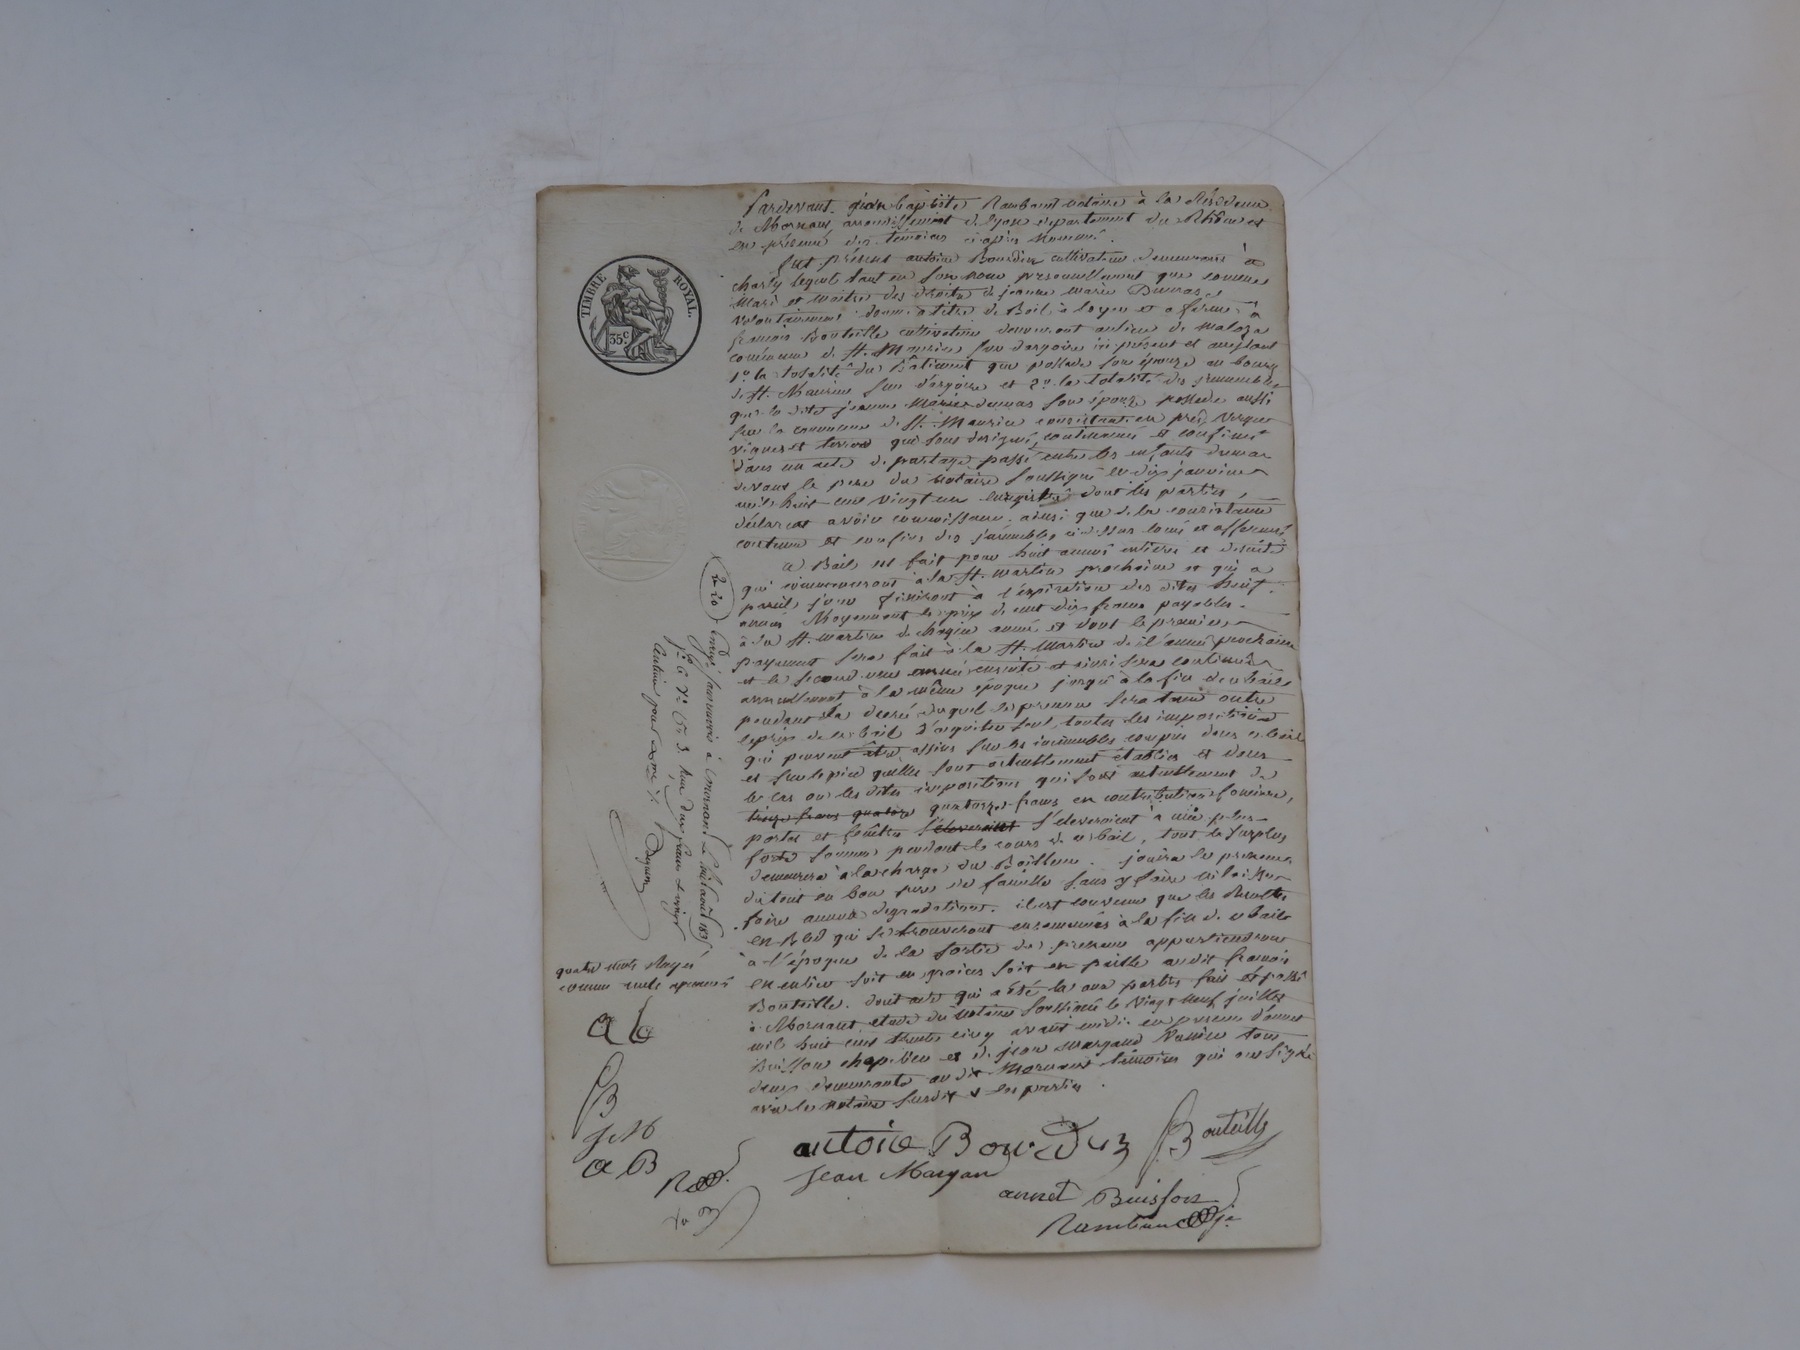 TIMBRE ROYAL.
35c
Pardevant jean baptiste Rambaud notaire à la Résidence
de Mornant, arrondissement de lyon departement du Rhône et
en présence des témoins ci après nommés.
fut présent antoine Bourdin cultivateur demeurant à
charly lequel tant en son nom personnellement que comme
Mari et maitre des droits de jeanne marie Dumas,
volontairement donne à titre de Bail à loyer et a ferme à
françois Bouteille cultivateur demeurant au lieu de
commune de St. Maurice sur dargoire ici présent et acceptant
1o. la totalité du Bâtiment que possede son épouse au bourg
de St. Maurice sur dargoire et 2o. la totalité des immeubles
que la dite jeanne Marie dumas son épouse possede aussi
sur la commune de St. Maurice consistant en pré, verger
vignes et terres qui sont designés, contenances et confinés
dans un acte de partage passé entre les enfants dumas
devant le pere du notaire soussigné le dix janvier
mil huit cent vingt un enregistré dont les parties
déclarent avoir connoissance, ainsi que de la consistance
contenue et confins des immeubles ci dessus loués et affermés
Ce Bail est fait pour huit années entieres et
qui commenceront à la St. martin prochaine et qui a
pareil jour finiront à l'expiration des dites huit
années Moyennant le prix de cent dix francs payables
à la St. martin de chaque année et dont le premier
payement sera fait à la St. Martin de l'année prochaine
et le second une année ensuite et ainsi sera continué
annuellement à la même époque jusqu'à la fin du bail
pendant la durée duquel le preneur sera tenu outre
le prix de ce bail d'acquitter seul toutes les impositions
qui peuvent être assises sur les immeubles compris dans ce bail
et sur le pied qu'elles sont actuellement établies et dans
le cas où les dites impositions qui sont actuellement de
treize francs quatorze quatorze francs en contribution fonciere,
portes et fenêtres s'éleveroient s'éleveroient à une plus
forte somme pendant le cours de ce bail, tout le surplus
demeurera à la charge du Bailleur. jouira le preneur
du tout en bon pere de famille sans y faire ni laisser
faire aucune degradations. il est convenu que les
en bled qui se trouveront ensemencés à la fin de ce bail
à l'époque de la sortie du preneur appartiendront
en entier soit en graines soit en paille au dit françois
Bouteille. dont acte qui a été lu aux parties fait et passé
à Mornant étude du notaire soussigné le vingt neuf juillet
mil huit cent trente cinq avant midi en presence d'annet
Buisson chapelier et de jean Margand tous
deux demeurants au dit Mornant témoins qui ont signé
avec le notaire susdit & les parties.
2 20
Enregistré à Mornant le août 1835
fo. 6 vo. Co. 3. Reçu deux francs
vingt
quatre mots Rayés
comme nuls approuvés
a b
B
J M
a B
antoine Bourdin Bouteille
Jean Margan
annet Buisson
Rambaud